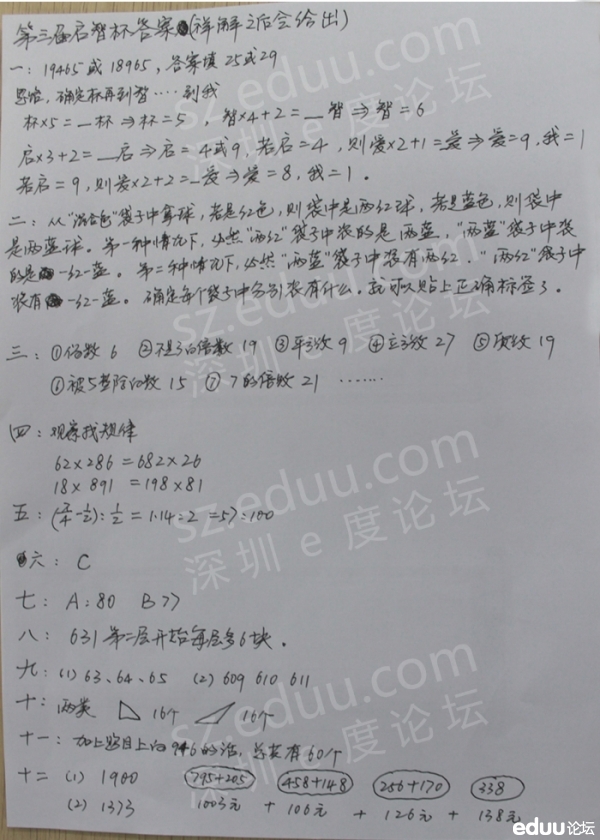 第三届启智杯答案(详解之后会给出)
一：19465或18965，答案填25或29
思路，确定杯再到智……到我
杯×5=_杯⇒杯=5，智×4+2=_智⇒智=6
启×3+2=_启⇒启=4或9，若启=4，则爱×2+1=_爱⇒爱=9，我=1
若启=9，则爱×2+2=_爱⇒爱=8，我=1。
二：从“混合色”袋子中拿球，若是红色，则袋中是两红球，若是蓝色，则袋中
是两蓝球。第一种情况下，必然“两红”袋子中装的是两蓝，“两蓝”袋子中装
的是一红一蓝。第二种情况下，必然“两蓝”袋子中装有两红，“两红”袋子中
装有一红一蓝。确定每个袋子中分别装有什么，就可以贴上正确标签了。
三：①偶数 6 ②不是3的倍数 19 ③平方数 9 ④立方数 27 ⑤质数 19
⑥被5整除的数 15 ⑦7的倍数 21 ……
四：观察找规律
62×286=682×26
18×891=198×81
五：(7/4-1/2):1/2=1.14:2=57:100
六：C
七：A:80 B 77
八：631 第二层开始每层多6块.
九：(1) 63、64、65 (2) 609 610 611
十：两类 16个 16个
十一：加上题目上的946的话，总共有60个
十二 (1) 1900 795+205 458+148 256+170 338
(2) 1373 1003元 + 106元 + 126元 + 138元
sz.eduu.com
深圳e度论坛
sz.eduu.com
深圳e度论坛
sz.eduu.com
深圳e度论坛
eduu论坛